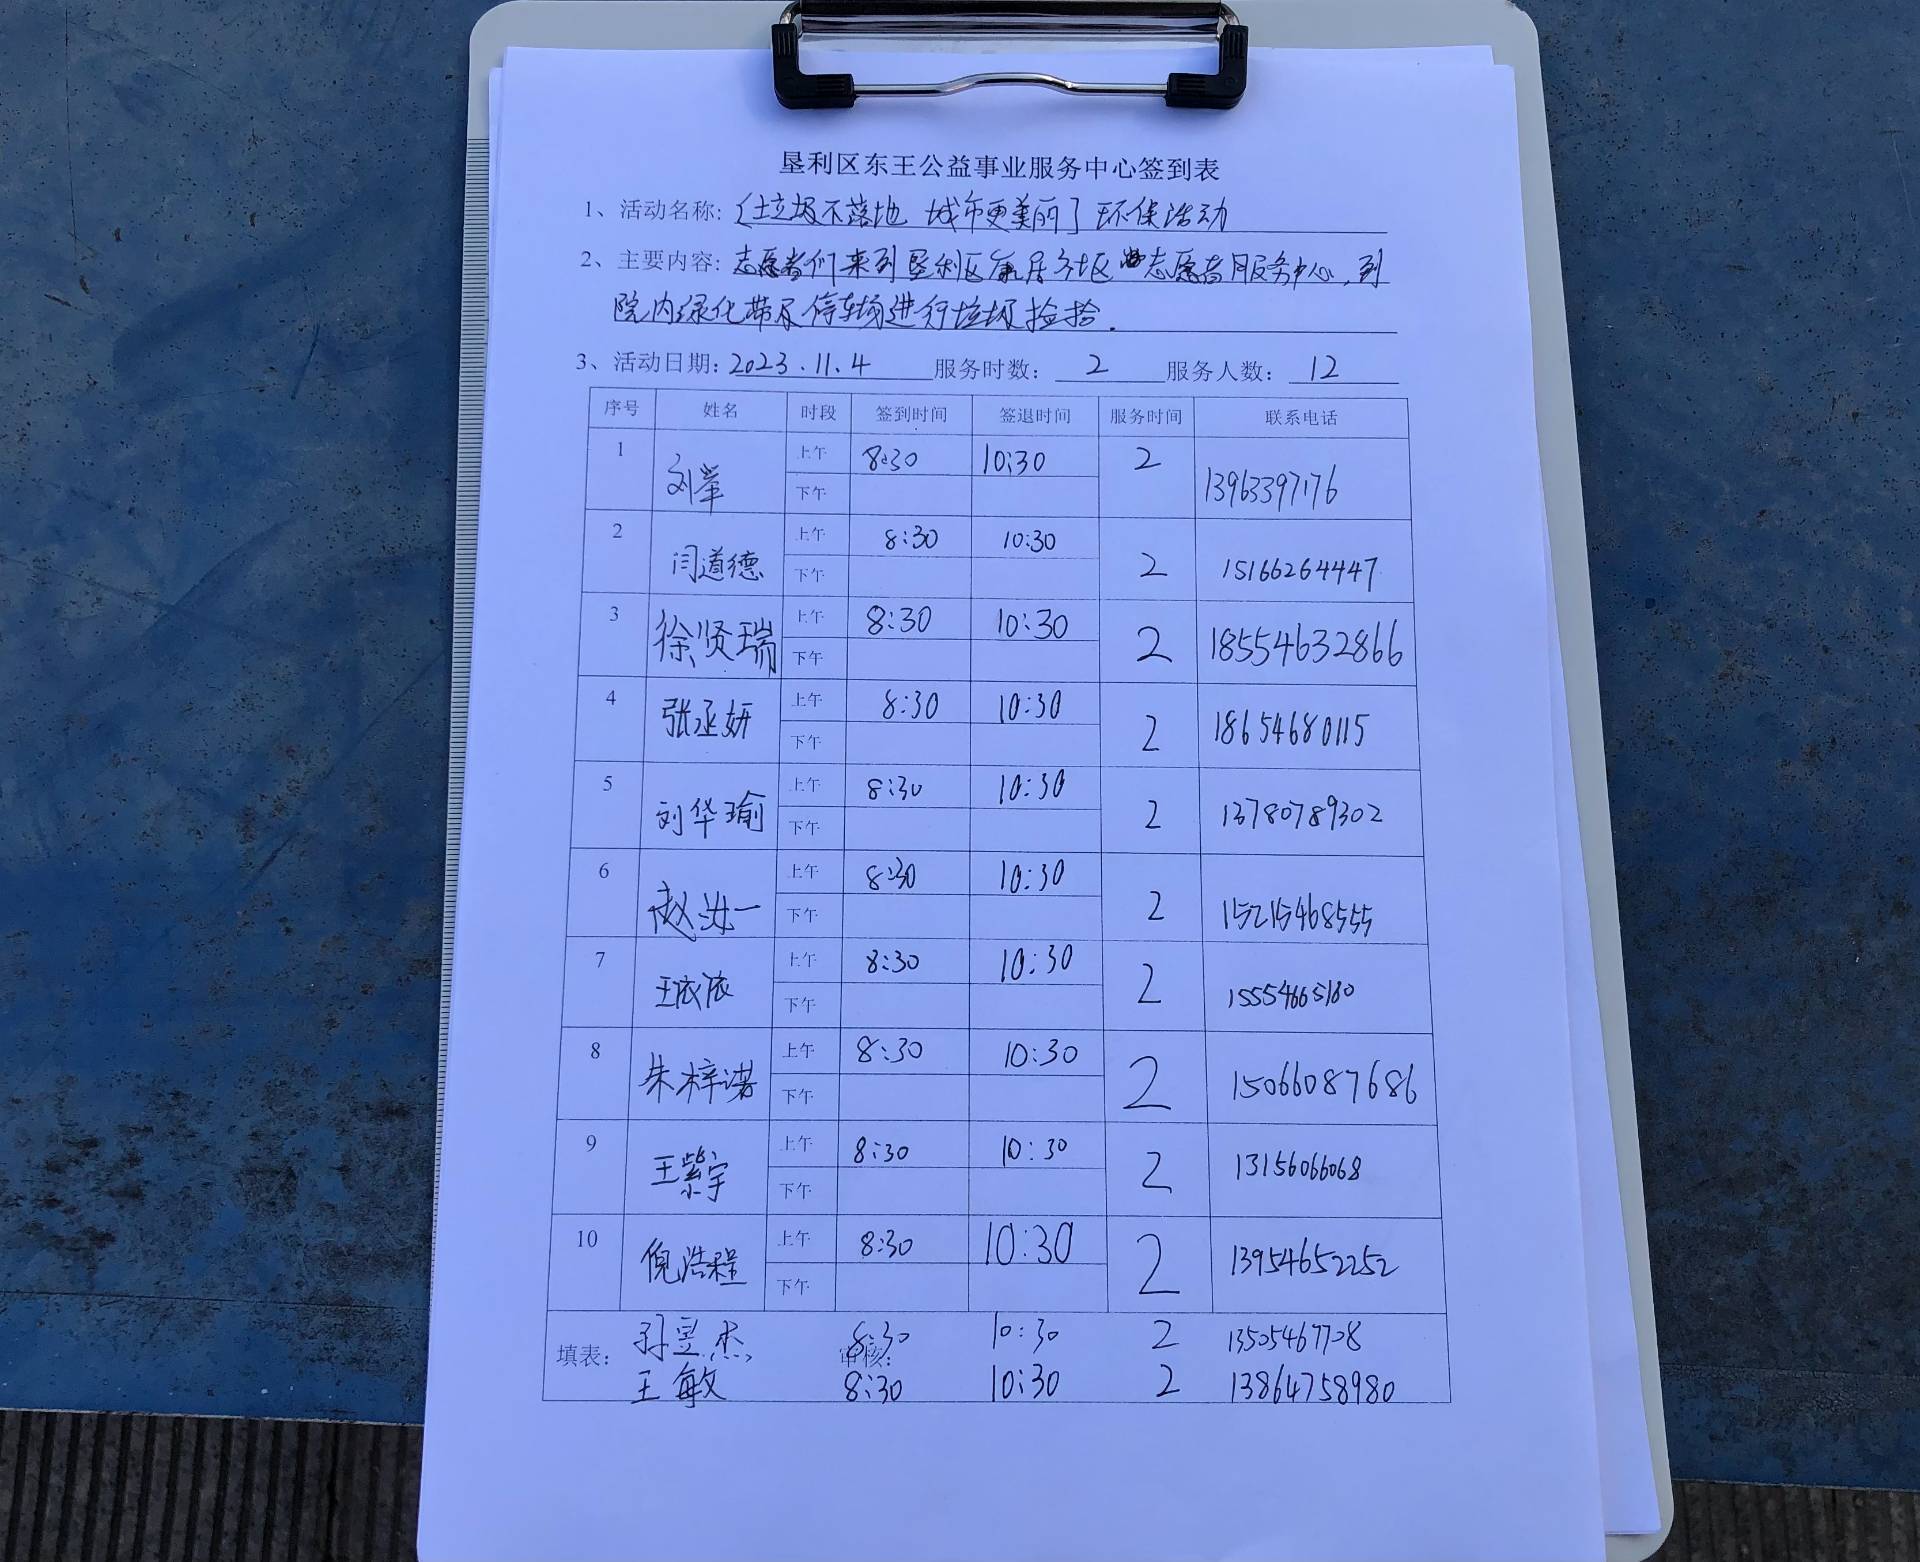 垦利区东王公益事业服务中心签到表
1、活动名称: [垃圾不落地 城市更美丽] 环保活动
2、主要内容: 志愿者们来到垦利区社区志愿者服务中心,到
院内绿化带及停车场进行垃圾捡拾.
3、活动日期: 2023.11.4 服务时数: 2 服务人数: 12
序号 姓名 时段 签到时间 签退时间 服务时间 联系电话
1 刘 上午 8:30 10:30 2 13963397176
下午
2 闫道德 上午 8:30 10:30 2 15166264447
下午
3 徐贤瑞 上午 8:30 10:30 2 18554632866
下午
4 张丞妍 上午 8:30 10:30 2 18654680115
下午
5 刘华瑜 上午 8:30 10:30 2 13780789302
下午
6 赵汝一 上午 8:30 10:30 2 15215468555
下午
7 王依依 上午 8:30 10:30 2 15554665180
下午
8 朱梓诺 上午 8:30 10:30 2 15066087686
下午
9 王紫宇 上午 8:30 10:30 2 13156066068
下午
10 倪浩程 上午 8:30 10:30 2 13954652252
下午
孙昱杰 8:30 10:30 2 13505467708
填表: 审核:
王敏 8:30 10:30 2 13864758980